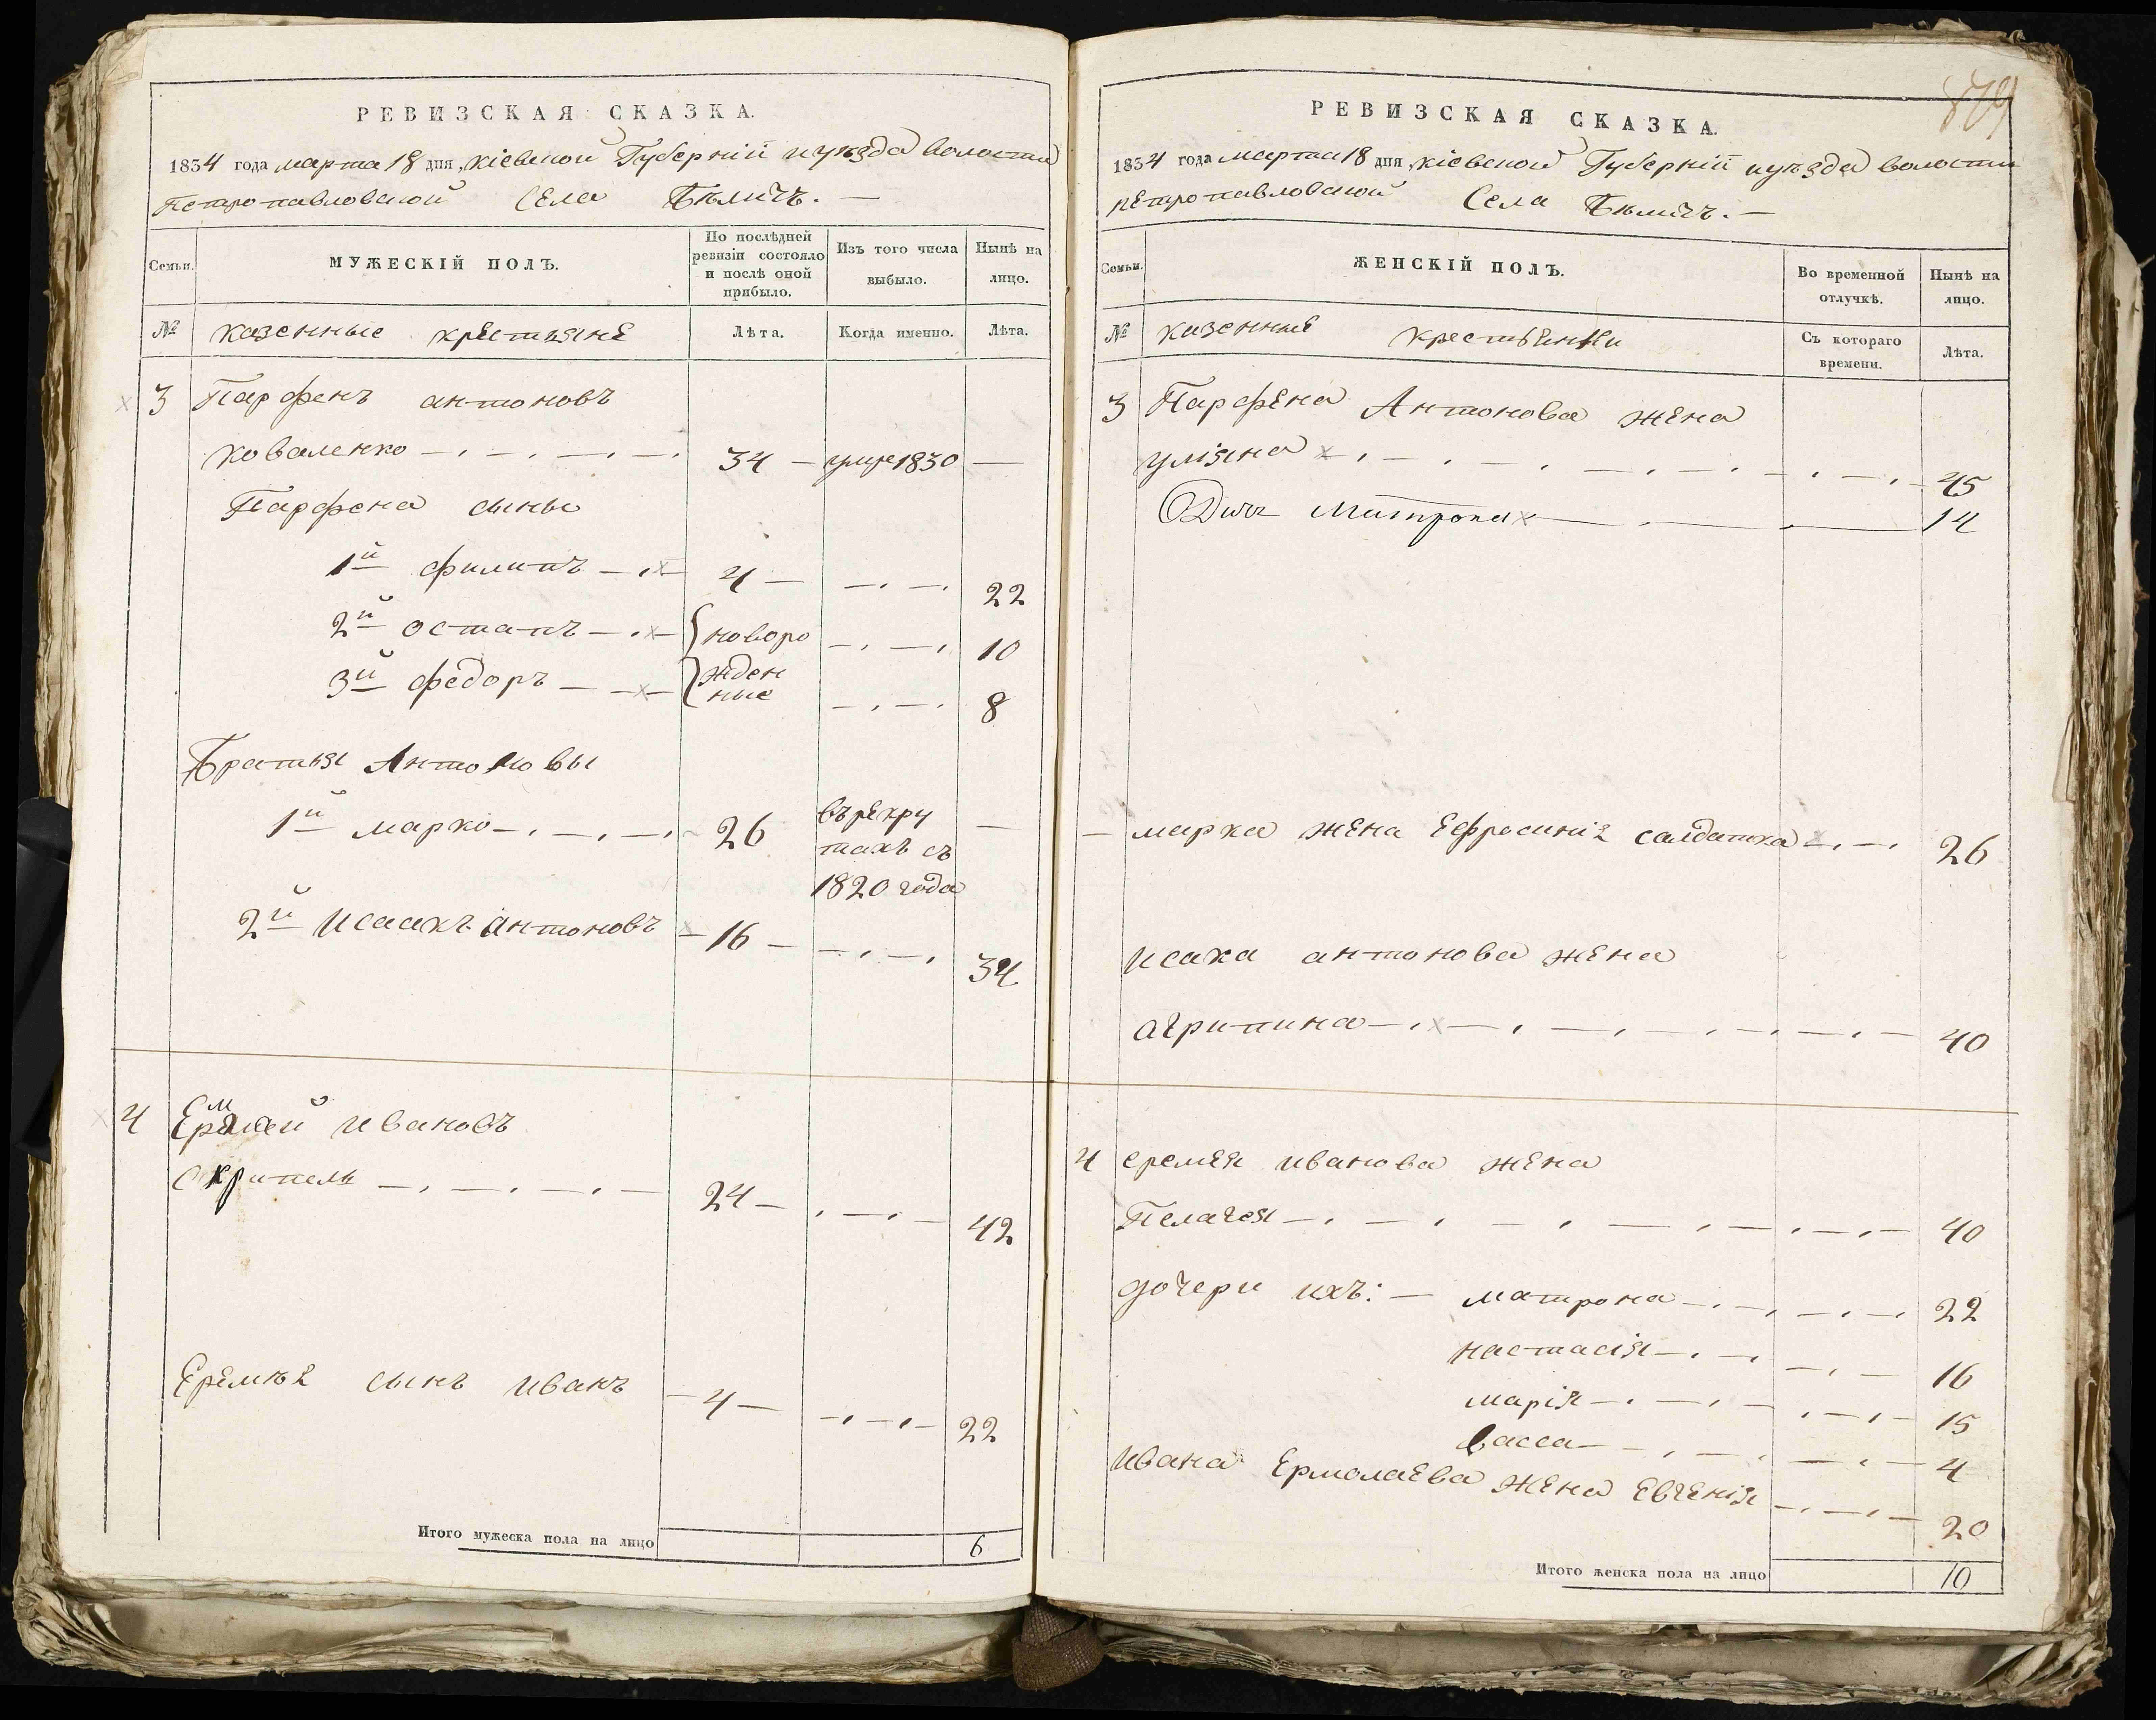 РЕВИЗСКАЯ СКАЗКА.
1834 года марта 18 дня, кіевской Губерніи и уѣзда волости
Петропавловской Села Бѣличъ. —
Семьи.
МУЖЕСКІЙ ПОЛЪ.
По послѣдней ревизіи состояло и послѣ оной прибыло.
Изъ того числа выбыло.
Нынѣ на лицо.
№ казенные крестьяне
Лѣта.
Когда именно.
Лѣта.
3 Парфенъ антоновъ
коваленко 34 — умре 1830 —
Парфена сыны
1й филипъ 4 — 22
2й остапъ новоро 10
3й федоръ жден 8
ные
Братья Антоновы
1й марко 26 въ рекру —
тахъ съ
1820 года
2й Исаакъ Антоновъ 16 — 34
4 Ермей Ивановъ
м
Скрипель 24 — 42
Еремѣя сынъ Иванъ 4 — 22
Итого мужеска пола на лицо 6
879
РЕВИЗСКАЯ СКАЗКА.
1834 года марта 18 дня, кіевской Губерніи и уѣзда волости
петропавловской Села Бѣличъ. —
Семьи.
ЖЕНСКІЙ ПОЛЪ.
Во временной отлучкѣ.
Нынѣ на лицо.
№ казенные крестьянки
Съ котораго времени.
Лѣта.
3 Парфена Антонова жена
уліяна 45
Дочь Матрона 14
— марка жена Ефросинія салдатка 26
исака антонова жена
агрипина 40
4 еремея иванова жена
Пелагея 40
дочери ихъ: — матрона 22
настасія 16
марія 15
васса 4
Ивана Ермолаева жена Евгенія 20
Итого женска пола на лицо 10